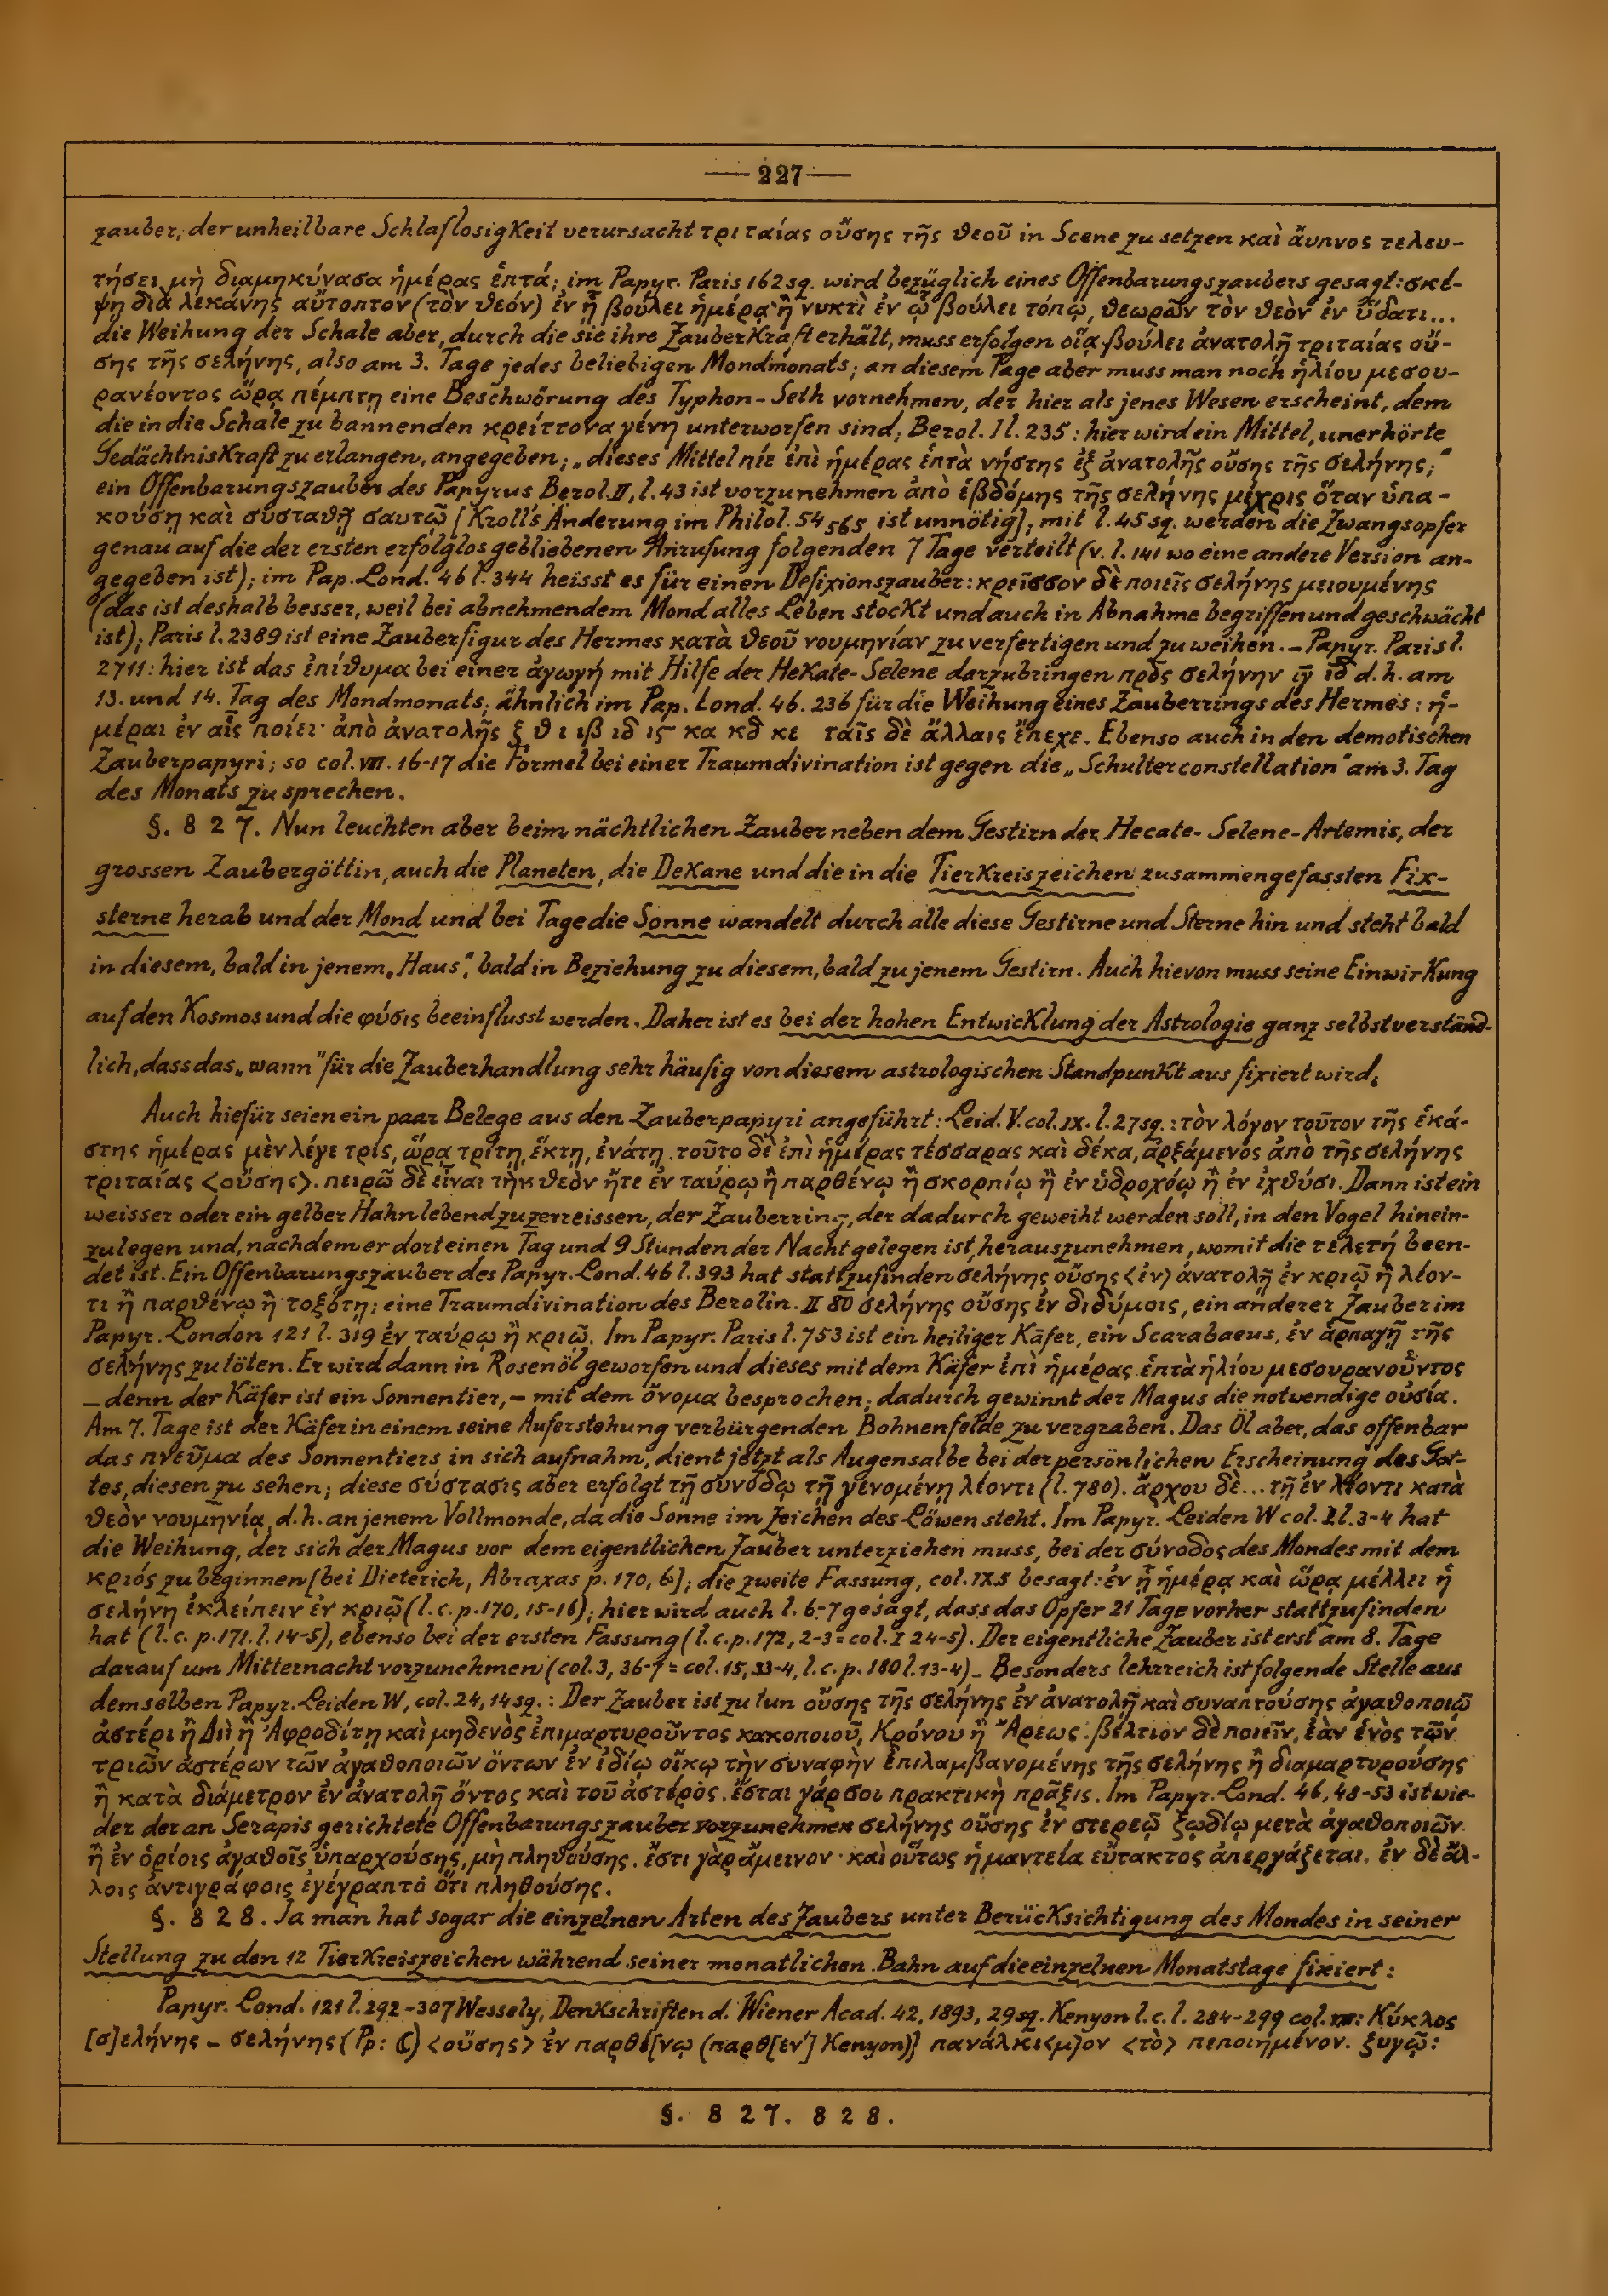 — 227 —
zauber, der unheilbare Schlaflosigkeit verursacht τριταίας οὔσης τῆς θεοῦ in Scene zu setzen καὶ ἄυπνος τελευ-
τήσει μὴ διαμηκύνασα ἡμέρας ἑπτά; im Papyr. Paris 162 sq. wird bezüglich eines Offenbarungszaubers gesagt: σκέ-
ψῃ διὰ λεκάνης αὔτοπτον (τὸν θεόν) ἐν ᾗ βούλει ἡμέρᾳ ἢ νυκτὶ ἐν ᾧ βούλει τόπῳ, θεωρῶν τὸν θεὸν ἐν ὕδατι...
die Weihung der Schale aber, durch die sie ihre Zauberkraft erhält, muss erfolgen οἵᾳ βούλει ἀνατολῇ τριταίας οὔ-
σης τῆς σελήνης, also am 3. Tage jedes beliebigen Mondmonats; an diesem Tage aber muss man noch ἡλίου μεσου-
ρανέοντος ὥρᾳ πέμπτῃ eine Beschwörung des Typhon-Seth vornehmen, der hier als jenes Wesen erscheint, dem
die in die Schale zu bannenden κρείττονα γένη unterworfen sind; Berol. I l. 235: hier wird ein Mittel, unerhörte
Gedächtniskraft zu erlangen, angegeben; „dieses Mittel πίε ἐπὶ ἡμέρας ἑπτὰ νήστης ἐξ ἀνατολῆς οὔσης τῆς σελήνης;"
ein Offenbarungszauber des Papyrus Berol. II, l. 43 ist vorzunehmen ἀπὸ ἑβδόμης τῆς σελήνης μέχρις ὅταν ὑπα-
κούσῃ καὶ συσταθῇ σαυτῶ [Kroll's Änderung im Philol. 54 565 ist unnötig]; mit l. 45 sq. werden die Zwangsopfer
genau auf die der ersten erfolglos gebliebenen Anrufung folgenden 7 Tage verteilt (v. l. 141 wo eine andere Version an-
gegeben ist); im Pap. Lond. 46 l. 344 heisst es für einen Defixionszauber: κρεῖσσον δὲ ποιεῖς σελήνης μειουμένης
(das ist deshalb besser, weil bei abnehmendem Mond alles Leben stockt und auch in Abnahme begriffen und geschwächt
ist); Paris l. 2389 ist eine Zauberfigur des Hermes κατὰ θεοῦ νουμηνίαν zu verfertigen und zu weihen. – Papyr. Paris l.
2711: hier ist das ἐπίθυμα bei einer ἀγωγή mit Hilfe der Hekate-Selene darzubringen πρὸς σελήνην ιγ̅ ιδ̅ d. h. am
13. und 14. Tag des Mondmonats; ähnlich im Pap. Lond. 46. 236 für die Weihung eines Zauberrings des Hermes: ἡ-
μέραι ἐν αἷς ποίει· ἀπὸ ἀνατολῆς ξ θ ι ιβ ιδ ις κα κδ κε ταῖς δὲ ἄλλαις ἔπεχε. Ebenso auch in den demotischen
Zauberpapyri; so col. VIII. 16-17 die Formel bei einer Traumdivination ist gegen die „Schulterconstellation" am 3. Tag
des Monats zu sprechen.
§. 827. Nun leuchten aber beim nächtlichen Zauber neben dem Gestirn der Hecate-Selene-Artemis, der
grossen Zaubergöttin, auch die Planeten, die Dekane und die in die Tierkreiszeichen zusammengefassten Fix-
sterne herab und der Mond und bei Tage die Sonne wandelt durch alle diese Gestirne und Sterne hin und steht bald
in diesem, bald in jenem „Haus", bald in Beziehung zu diesem, bald zu jenem Gestirn. Auch hievon muss seine Einwirkung
auf den Kosmos und die φύσις beeinflusst werden. Daher ist es bei der hohen Entwicklung der Astrologie ganz selbstverständ-
lich, dass das „wann" für die Zauberhandlung sehr häufig von diesem astrologischen Standpunkt aus fixiert wird.
Auch hiefür seien ein paar Belege aus den Zauberpapyri angeführt: Leid. V. col. IX. l. 27 sq.: τὸν λόγον τοῦτον τῆς ἑκά-
στης ἡμέρας μὲν λέγε τρίς, ὥρᾳ τρίτῃ, ἕκτῃ, ἐνάτῃ. τοῦτο δὲ ἐπὶ ἡμέρας τέσσαρας καὶ δέκα, ἀρξάμενος ἀπὸ τῆς σελήνης
τριταίας <οὔσης>. πειρῶ δὲ εἶναι τὴν θεὸν ἤτε ἐν ταύρῳ ἢ παρθένῳ ἢ σκορπίῳ ἢ ἐν ὑδροχόῳ ἢ ἐν ἰχθύσι. Dann ist ein
weisser oder ein gelber Hahn lebend zu zerreissen, der Zauberring, der dadurch geweiht werden soll, in den Vogel hinein-
zulegen und, nachdem er dort einen Tag und 9 Stunden der Nacht gelegen ist, herauszunehmen, womit die τελετή been-
det ist. Ein Offenbarungszauber des Papyr. Lond. 46 l. 393 hat stattzufinden σελήνης οὔσης <ἐν> ἀνατολῇ ἐν κριῷ ἢ λέον-
τι ἢ παρθένῳ ἢ τοξότῃ; eine Traumdivination des Berolin. II 80 σελήνης οὔσης ἐν διδύμοις, ein anderer Zauber im
Papyr. London 121 l. 319 ἐν ταύρῳ ἢ κριῷ. Im Papyr. Paris l. 753 ist ein heiliger Käfer, ein Scarabaeus, ἐν ἁρπαγῇ τῆς
σελήνης zu töten. Er wird dann in Rosenöl geworfen und dieses mit dem Käfer ἐπὶ ἡμέρας ἑπτὰ ἡλίου μεσουρανοῦντος
– denn der Käfer ist ein Sonnentier, – mit dem ὄνομα besprochen; dadurch gewinnt der Magus die notwendige οὐσία.
Am 7. Tage ist der Käfer in einem seine Auferstehung verbürgenden Bohnenfelde zu vergraben. Das Öl aber, das offenbar
das πνεῦμα des Sonnentiers in sich aufnahm, dient jetzt als Augensalbe bei der persönlichen Erscheinung des Got-
tes, diesen zu sehen; diese σύστασις aber erfolgt τῇ συνόδῳ τῇ γενομένῃ λέοντι (l. 780). ἄρχου δὲ... τῇ ἐν λέοντι κατὰ
θεὸν νουμηνίᾳ, d. h. an jenem Vollmonde, da die Sonne im Zeichen des Löwen steht. Im Papyr. Leiden W col. I l. 3-4 hat
die Weihung, der sich der Magus vor dem eigentlichen Zauber unterziehen muss, bei der σύνοδος des Mondes mit dem
κριός zu beginnen [bei Dieterich, Abraxas p. 170, 6]; die zweite Fassung, col. IX.5 besagt: ἐν ᾗ ἡμέρᾳ καὶ ὥρᾳ μέλλει ἡ
σελήνη ἐκλείπειν ἐν κριῷ (l. c. p. 170, 15-16); hier wird auch l. 6-7 gesagt, dass das Opfer 21 Tage vorher stattzufinden
hat (l. c. p. 171. l. 14-5), ebenso bei der ersten Fassung (l. c. p. 172, 2-3 = col. I 24-5). Der eigentliche Zauber ist erst am 8. Tage
darauf um Mitternacht vorzunehmen (col. 3, 36-7 = col. 15, 33-4, l. c. p. 180 l. 13-4) – Besonders lehrreich ist folgende Stelle aus
demselben Papyr. Leiden W, col. 24, 14 sq.: Der Zauber ist zu tun οὔσης τῆς σελήνης ἐν ἀνατολῇ καὶ συναπτούσης ἀγαθοποιῷ
ἀστέρι ἢ Διὶ ἢ Ἀφροδίτῃ καὶ μηδενὸς ἐπιμαρτυροῦντος κακοποιοῦ, Κρόνου ἢ Ἄρεως. βέλτιον δὲ ποιεῖν, ἐὰν ἑνὸς τῶν
τριῶν ἀστέρων τῶν ἀγαθοποιῶν ὄντων ἐν ἰδίῳ οἴκῳ τὴν συναφὴν ἐπιλαμβανομένης τῆς σελήνης ἢ διαμαρτυρούσης
ἢ κατὰ διάμετρον ἐν ἀνατολῇ ὄντος καὶ τοῦ ἀστέρος. ἔσται γάρ σοι πρακτικὴ πρᾶξις. Im Papyr. Lond. 46, 48-53 ist wie-
der der an Serapis gerichtete Offenbarungszauber vorzunehmen σελήνης οὔσης ἐν στερεῷ ζῳδίῳ μετὰ ἀγαθοποιῶν
ἢ ἐν ὁρίοις ἀγαθοῖς ὑπαρχούσης, μὴ πληθούσης. ἔστι γὰρ ἄμεινον· καὶ οὕτως ἡ μαντεία εὔτακτος ἀπεργάζεται. ἐν δὲ ἄλ-
λοις ἀντιγράφοις ἐγέγραπτο ὅτι πληθούσης.
§. 828. Ja man hat sogar die einzelnen Arten des Zaubers unter Berücksichtigung des Mondes in seiner
Stellung zu den 12 Tierkreiszeichen während seiner monatlichen Bahn auf die einzelnen Monatstage fixiert:
Papyr. Lond. 121 l. 292-307 Wessely, Denkschriften d. Wiener Acad. 42, 1893, 29 sq. Kenyon l. c. l. 284-299 col. VIII: Κύκλος
[σ]ελήνης – σελήνης (Pp: ☾) <οὔσης> ἐν παρθέ[νῳ (παρθ[έν'] Kenyon)] πανάλκι<μ>ον <τὸ> πεποιημένον. ζυγῷ:
§. 827. 828.